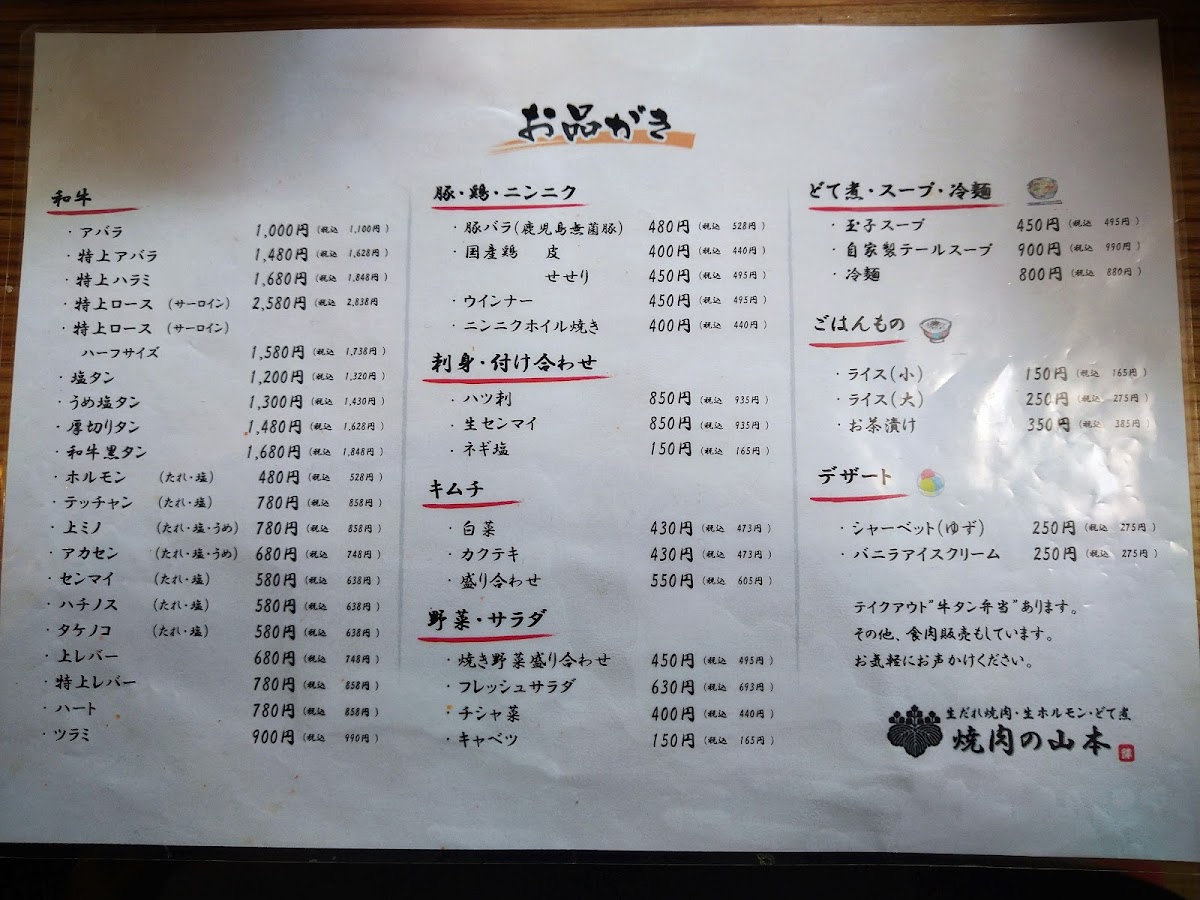 お品がき
和牛
・アバラ 1,000円(税込 1,100円)
・特上アバラ 1,480円(税込 1,628円)
・特上ハラミ 1,680円(税込 1,848円)
・特上ロース (サーロイン) 2,580円(税込 2,838円
・特上ロース (サーロイン)
ハーフサイズ 1,580円(税込 1,738円)
・塩タン 1,200円(税込 1,320円)
・うめ塩タン 1,300円(税込 1,430円)
・厚切りタン 1,480円(税込 1,628円)
・和牛黒タン 1,680円(税込 1,848円)
・ホルモン (たれ・塩) 480円(税込 528円)
・テッチャン (たれ・塩) 780円(税込 858円)
・上ミノ (たれ・塩・うめ) 780円(税込 858円)
・アカセン (たれ・塩・うめ) 680円(税込 748円)
・センマイ (たれ・塩) 580円(税込 638円)
・ハチノス (たれ・塩) 580円(税込 638円)
・タケノコ (たれ・塩) 580円(税込 638円)
・上レバー 680円(税込 748円)
・特上レバー 780円(税込 858円)
・ハート 780円(税込 858円)
・ツラミ 900円(税込 990円)
豚・鶏・ニンニク
・豚バラ(鹿児島無菌豚) 480円(税込 528円)
・国産鶏 皮 400円(税込 440円)
せせり 450円(税込 495円)
・ウインナー 450円(税込 495円)
・ニンニクホイル焼き 400円(税込 440円)
刺身・付け合わせ
・ハツ刺 850円(税込 935円)
・生センマイ 850円(税込 935円)
・ネギ塩 150円(税込 165円)
キムチ
・白菜 430円(税込 473円)
・カクテキ 430円(税込 473円)
・盛り合わせ 550円(税込 605円)
野菜・サラダ
・焼き野菜盛り合わせ 450円(税込 495円)
・フレッシュサラダ 630円(税込 693円)
・チシャ菜 400円(税込 440円)
・キャベツ 150円(税込 165円)
どて煮・スープ・冷麺
・玉子スープ 450円(税込 495円)
・自家製テールスープ 900円(税込 990円)
・冷麺 800円(税込 880円)
ごはんもの
・ライス(小) 150円(税込 165円)
・ライス(大) 250円(税込 275円)
・お茶漬け 350円(税込 385円)
デザート
・シャーベット(ゆず) 250円(税込 275円)
・バニラアイスクリーム 250円(税込 275円)
テイクアウト"牛タン弁当"あります。
その他、食肉販売もしています。
お気軽にお声かけください。
生だれ焼肉・生ホルモン・どて煮
焼肉の山本